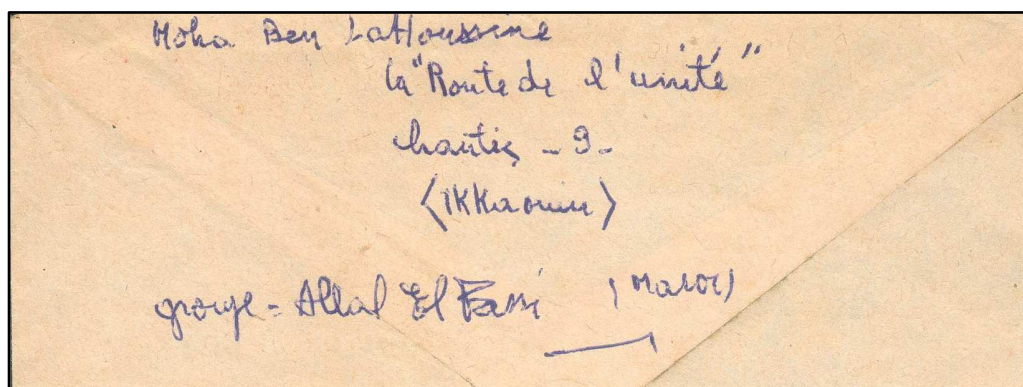 Moha Ben LaHoussine
la "Route de l'unité"
hantiç - 9 -
(IKKaouen)
groupe = Allal El Fassi (Maroc)